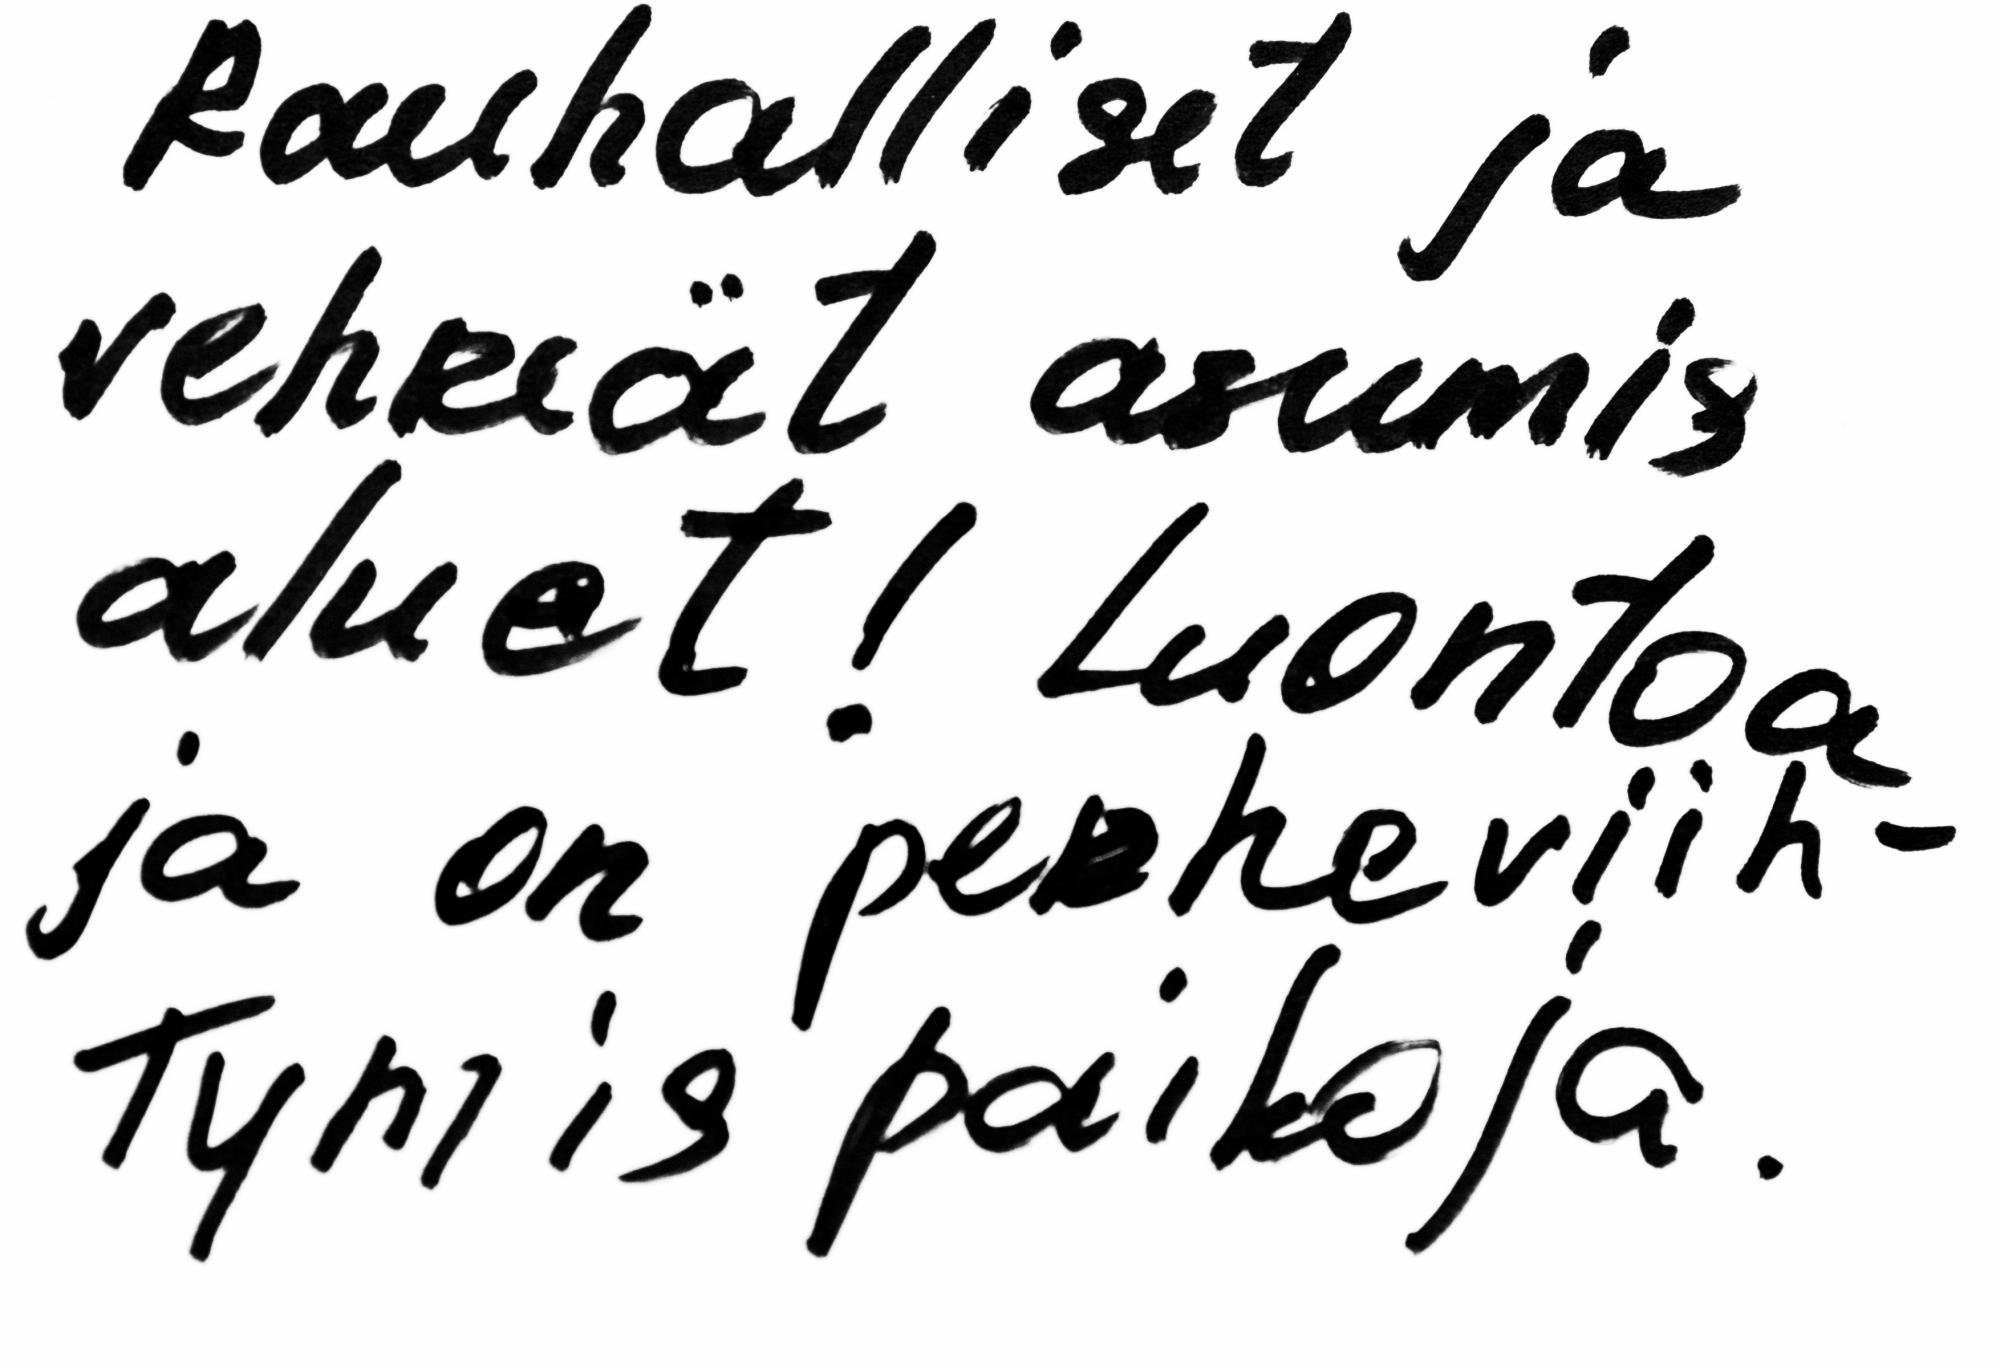 Rauhalliset ja
vehreät asumis
aluet! Luontoa
ja on perheviih-
tymis paikoja.